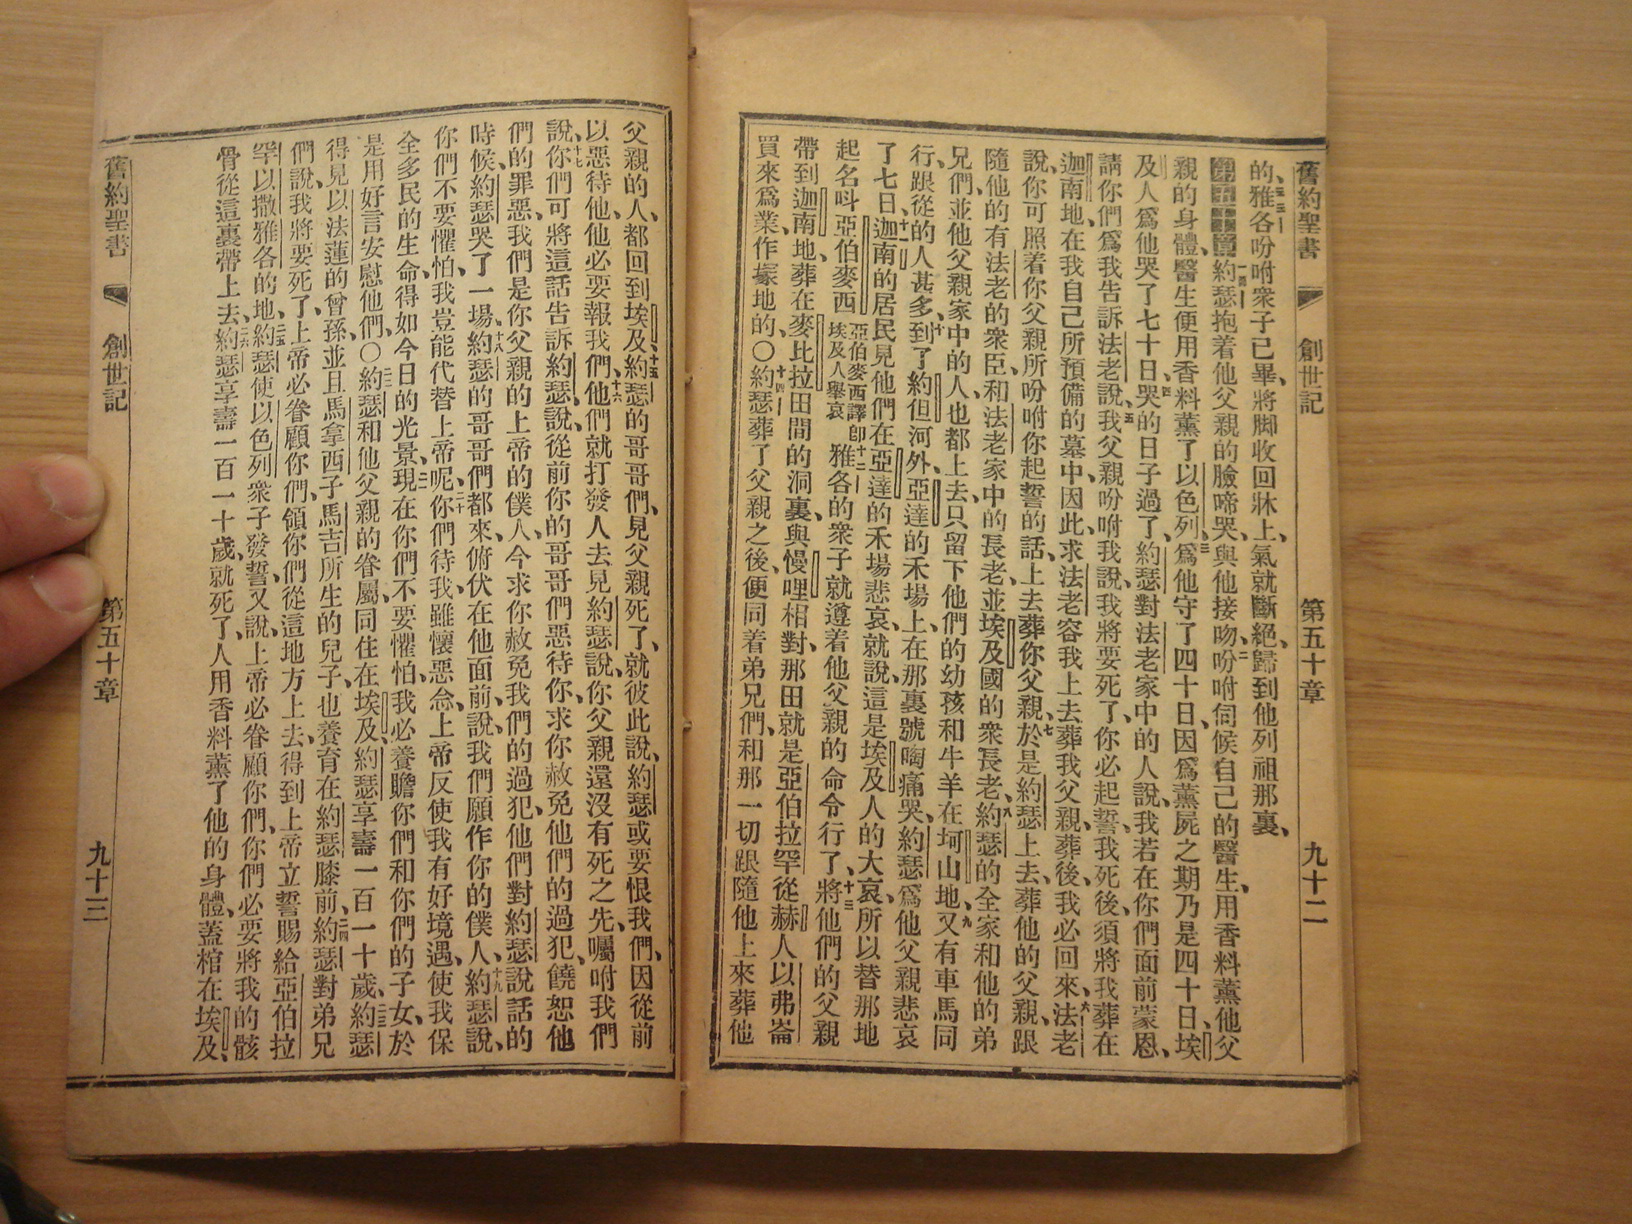 舊約聖書 創世記 第五十章 九十二
的、三三雅各吩咐衆子已畢、將脚收回牀上、氣就斷絕、歸到他列祖那裏、
第五十章 一約瑟抱着他父親的臉啼哭、與他接吻、二吩咐伺候自己的醫生、用香料薰他父
親的身體、醫生便用香料薰了以色列、三爲他守了四十日、因爲薰屍之期乃是四十日、埃
及人爲他哭了七十日、四哭的日子過了、約瑟對法老家中的人說、我若在你們面前蒙恩、
請你們爲我告訴法老說、五我父親吩咐我說、我將要死了、你必起誓、我死後須將我葬在
迦南地、在我自己所預備的墓中、因此求法老容我上去葬我父親、葬後我必回來、六法老
說、你可照着你父親所吩咐你起誓的話、上去葬你父親、七於是約瑟上去葬他的父親、跟
隨他的有法老的衆臣、和法老家中的長老、並埃及國的衆長老、八約瑟的全家和他的弟
兄們、並他父親家中的人、也都上去、只留下他們的幼孩和牛羊在坷山地、九又有車馬同
行、跟從的人甚多、十到了約但河外、亞達的禾場上、在那裏號啕痛哭、約瑟爲他父親悲哀
了七日、十一迦南的居民見他們在亞達的禾場悲哀、就說、這是埃及人的大哀、所以替那地
起名呌亞伯麥西亞伯麥西譯卽埃及人舉哀十二雅各的衆子就遵着他父親的命令行了、十三將他們的父親
帶到迦南地、葬在麥比拉田間的洞裏、與慢哩相對、那田就是亞伯拉罕從赫人以弗崙
買來爲業、作塚地的、〇十四約瑟葬了父親之後、便同着弟兄們、和那一切跟隨他上來葬他
父親的人、都回到埃及、十五約瑟的哥哥們、見父親死了、就彼此說、約瑟或要恨我們、因從前
以惡待他、他必要報我們、十六他們就打發人去見約瑟說、你父親還沒有死之先、囑咐我們
說、十七你們可將這話告訴約瑟說、從前你的哥哥們惡待你、求你赦免他們的過犯、饒恕他
們的罪惡、我們是你父親的上帝的僕人、今求你赦免我們的過犯、他們對約瑟說話的
時候、約瑟哭了一場、十八約瑟的哥哥們都來、俯伏在他面前說、我們願作你的僕人、十九約瑟說、
你們不要懼怕、我豈能代替上帝呢、二十你們待我、雖懷惡念、上帝反使我有好境遇、使我保
全多民的生命、得如今日的光景、二一現在你們不要懼怕、我必養贍你們和你們的子女、於
是用好言安慰他們、〇二二約瑟和他父親的眷屬、同住在埃及、約瑟享壽一百一十歲、二三約瑟
得見以法蓮的曾孫、並且馬拿西子馬吉所生的兒子、也養育在約瑟膝前、二四約瑟對弟兄
們說、我將要死了、上帝必眷顧你們、領你們從這地方上去、得到上帝立誓賜給亞伯拉
罕以撒雅各的地、二五約瑟使以色列衆子發誓、又說、上帝必眷顧你們、你們必要將我的骸
骨從這裏帶上去、二六約瑟享壽一百一十歲、就死了、人用香料薰了他的身體、蓋棺在埃及、
舊約聖書 創世記 第五十章 九十三